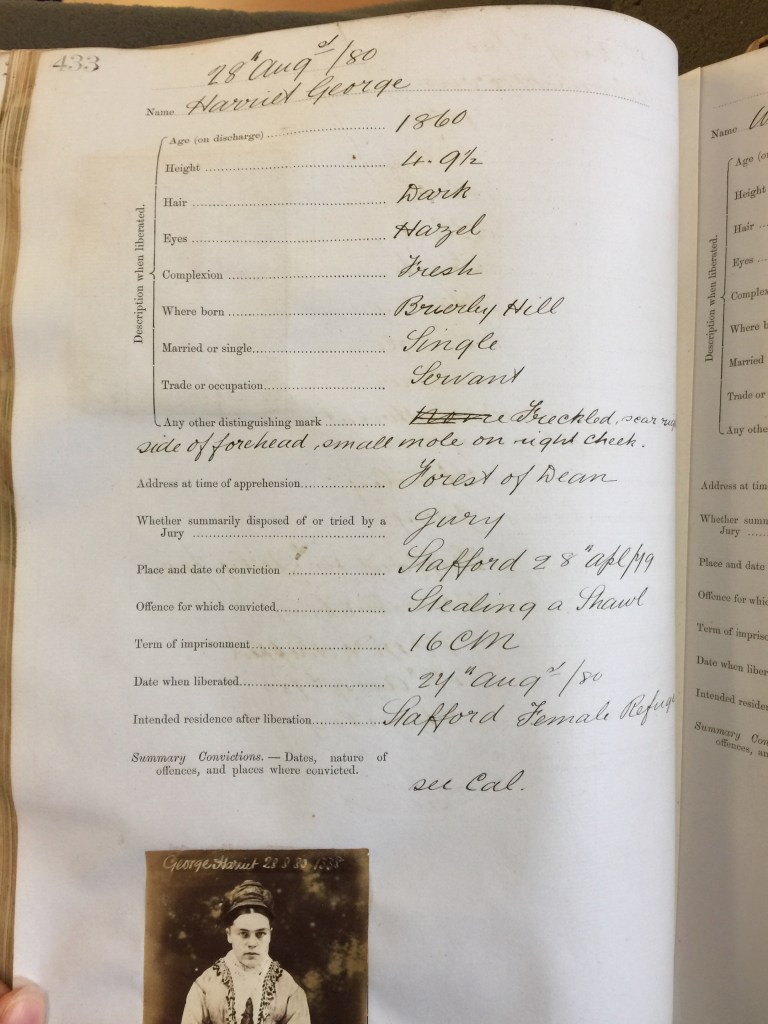 433
28" Augst/80
Name Harriet George
Description when liberated.
Age (on discharge) 1860
Height 4. 9½
Hair Dark
Eyes Hazel
Complexion Fresh
Where born Brierley Hill
Married or single Single
Trade or occupation Servant
Any other distinguishing mark Freckled, scar
side of forehead, small mole on right cheek.
Address at time of apprehension Forest of Dean
Whether summarily disposed of or tried by a
Jury Jury
Place and date of conviction Stafford 28" Apl/79
Offence for which convicted Stealing a Shawl
Term of imprisonment 16 CM
Date when liberated 27" Augst/80
Intended residence after liberation Stafford Female Refuge
Summary Convictions. — Dates, nature of
offences, and places where convicted.
see Cal.
George Harriet 28 8 80
Name
Description when liberated.
Age
Height
Hair
Eyes
Where
Married
Trade or
Any
Address at
Whether
Jury
Place and date
Offence for
Term of
Date when
Intended
Summary
offences,